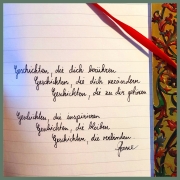 Geschichten, die dich berühren
Geschichten, die dich verändern
Geschichten, die zu dir gehören
Geschichten, die inspirieren
Geschichten, die bleiben
Geschichten, die verbinden